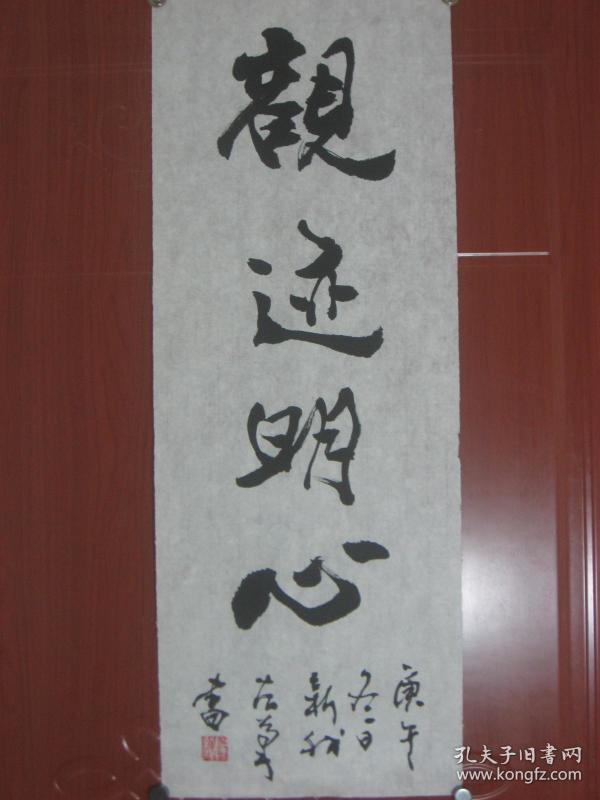 觀迹明心
庚午
冬日
新
書
孔夫子旧书网
www.kongfz.com